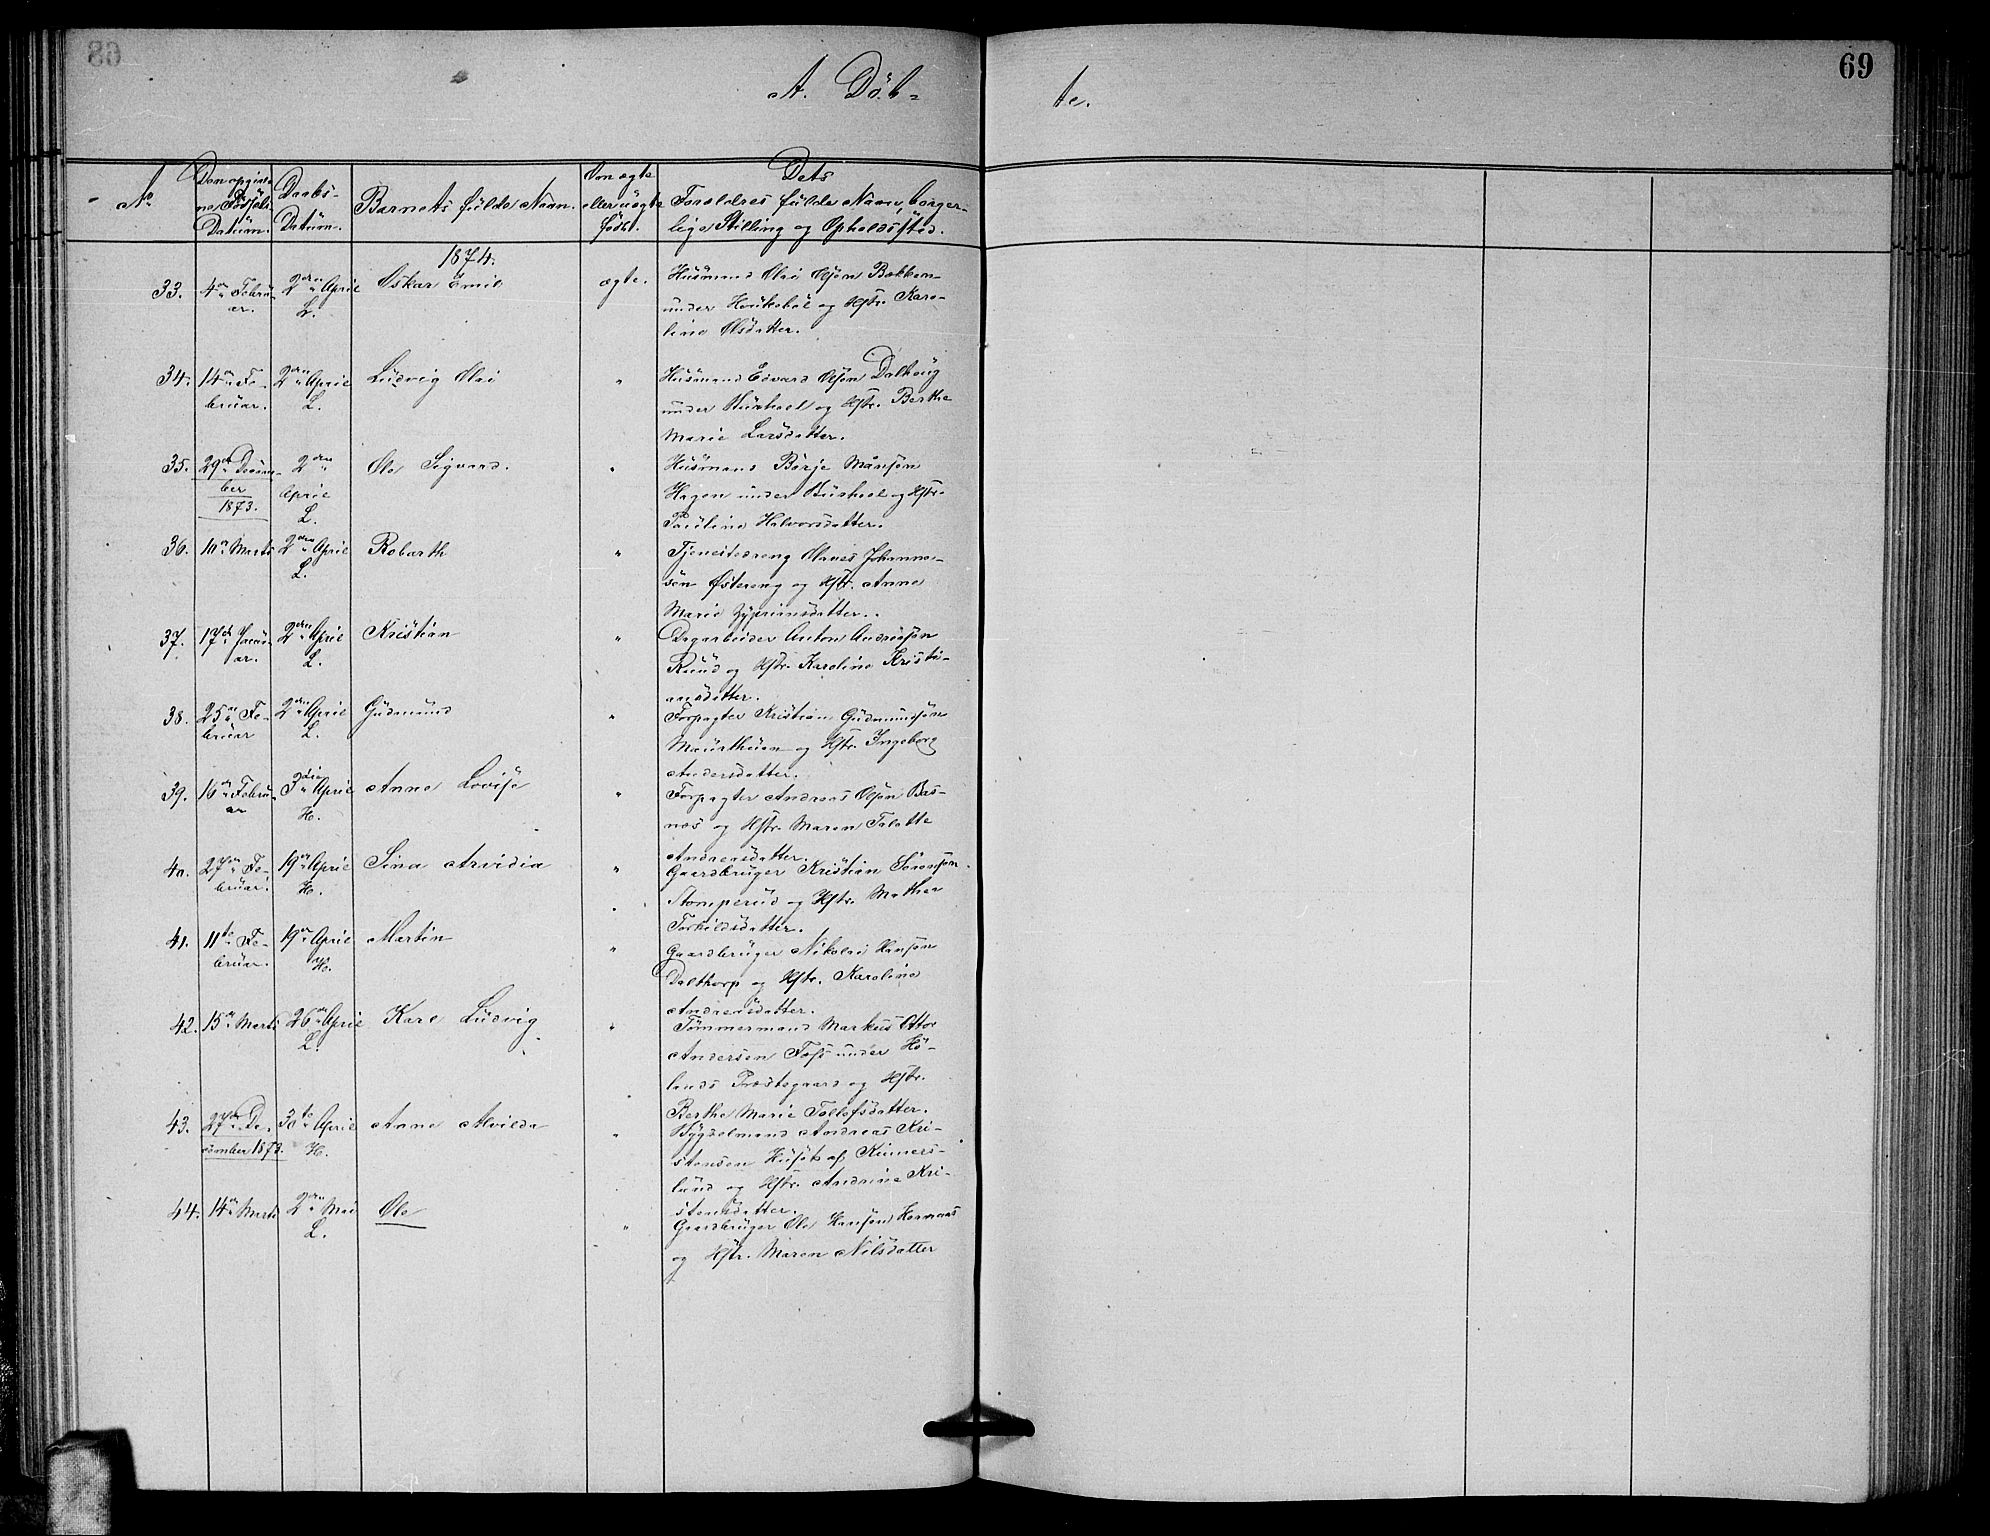 69
A. Döb- te.
No
Den opgivne Fødsels Datum.
Daabs-Datum.
Barnets fulde Navn.
Om ægte eller uægte født.
Dets Forældres fulde Navne, borgerlige Stilling og Opholdssted.
1874.
33. 4de Februar. 2den April L. Oskar Emil ægte. Husmand Olai Olsøn Bækken
under og Hstr. Karo-
line Olsdatter.
34. 14de Februar. 2den April L. Ludvig Olai " Husmand Edvard Olsøn Dalhaug
under og Hstr. Berthe
Marie Larsdatter.
35. 29de December 1873. 2den April L. Ole Sigvard. " Husmand Börje Månsøn
Hagen under og Hstr.
Pauline Halvorsdatter.
36. 10de Marts 2den April L. Robarth " Tjenestedreng Olaves Johanne-
sen Østereng og Hstr. Anne
Marie Zypriansdatter.
37. 17de Januar. 2den April L. Kristian " Dagarbeider Anton Andreasøn
Ruud og Hstr. Karoline Kristi-
ansdatter.
38. 25de Februar 2den April L. Gudmund " Forpagter Kristian Gudmundsøn
og Hstr. Ingeborg
Andersdatter.
39. 16de Februar 3die April H. Anne Lovise " Forpagter Andreas Olsøn Bas-
næs og Hstr. Maren Talette
Andreasdatter.
40. 27de Februar. 19de April H. Sina Arvidia " Gaardbruger Kristian Sörensøn
Stomperud og Hstr. Mathea
Torkildsdatter.
41. 11te Februar. 19de April H. Martin " Gaardbruger Nikolai Hansøn
Dalthorp og Hstr. Karoline
Andreasdatter.
42. 15de Marts 26de April L. Karl Ludvig " Tömmermand Markus Otto
Andersen Foss under Hö-
lands Præstegaard og Hstr.
Berthe Marie Tollefsdatter.
43. 27de December 1873. 30te April H. Anne Alvilde " Bygselmand Andreas Kri-
stensen af Kinners-
lund og Hstr. Andrine Kri-
stensdatter.
44. 14de Marts 2den Mai L. Ole " Gaardbruger Ole Hansøn
og Hstr. Maren Nilsdatter